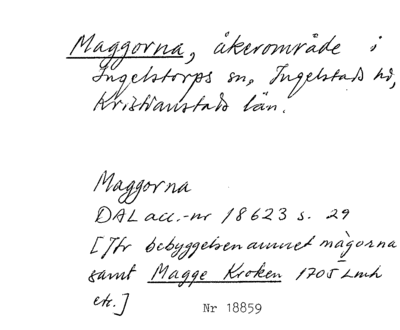 Maggorna, åkerområde i
Ingelstorps sn, Ingelstads hd,
Kristianstads län.
Maggorna
DAL acc.-nr 18623 s. 29
[Jfr bebyggelsenamnet màgorna
samt Magge Kroken 1705 Lmh
etc.]
Nr 18859